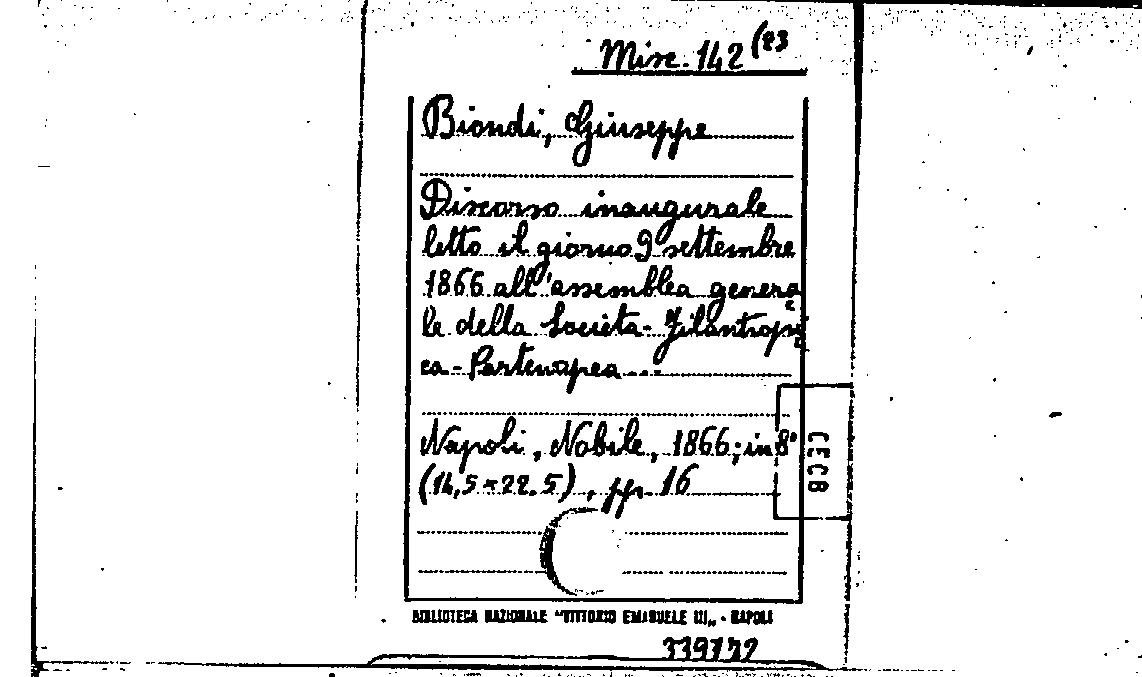 Misc. 142 (23
Biondi, Giuseppe
Discorso inaugurale
letto il giorno 9 settembre
1866 all'assemblea genera
le della Società-Filantropi
ca-Partenopea...
Napoli, Nobile, 1866; in 8°
(14,5=22.5), pp. 16
CFCB
BIBLIOTECA NAZIONALE "VITTORIO EMANUELE III„ - NAPOLI